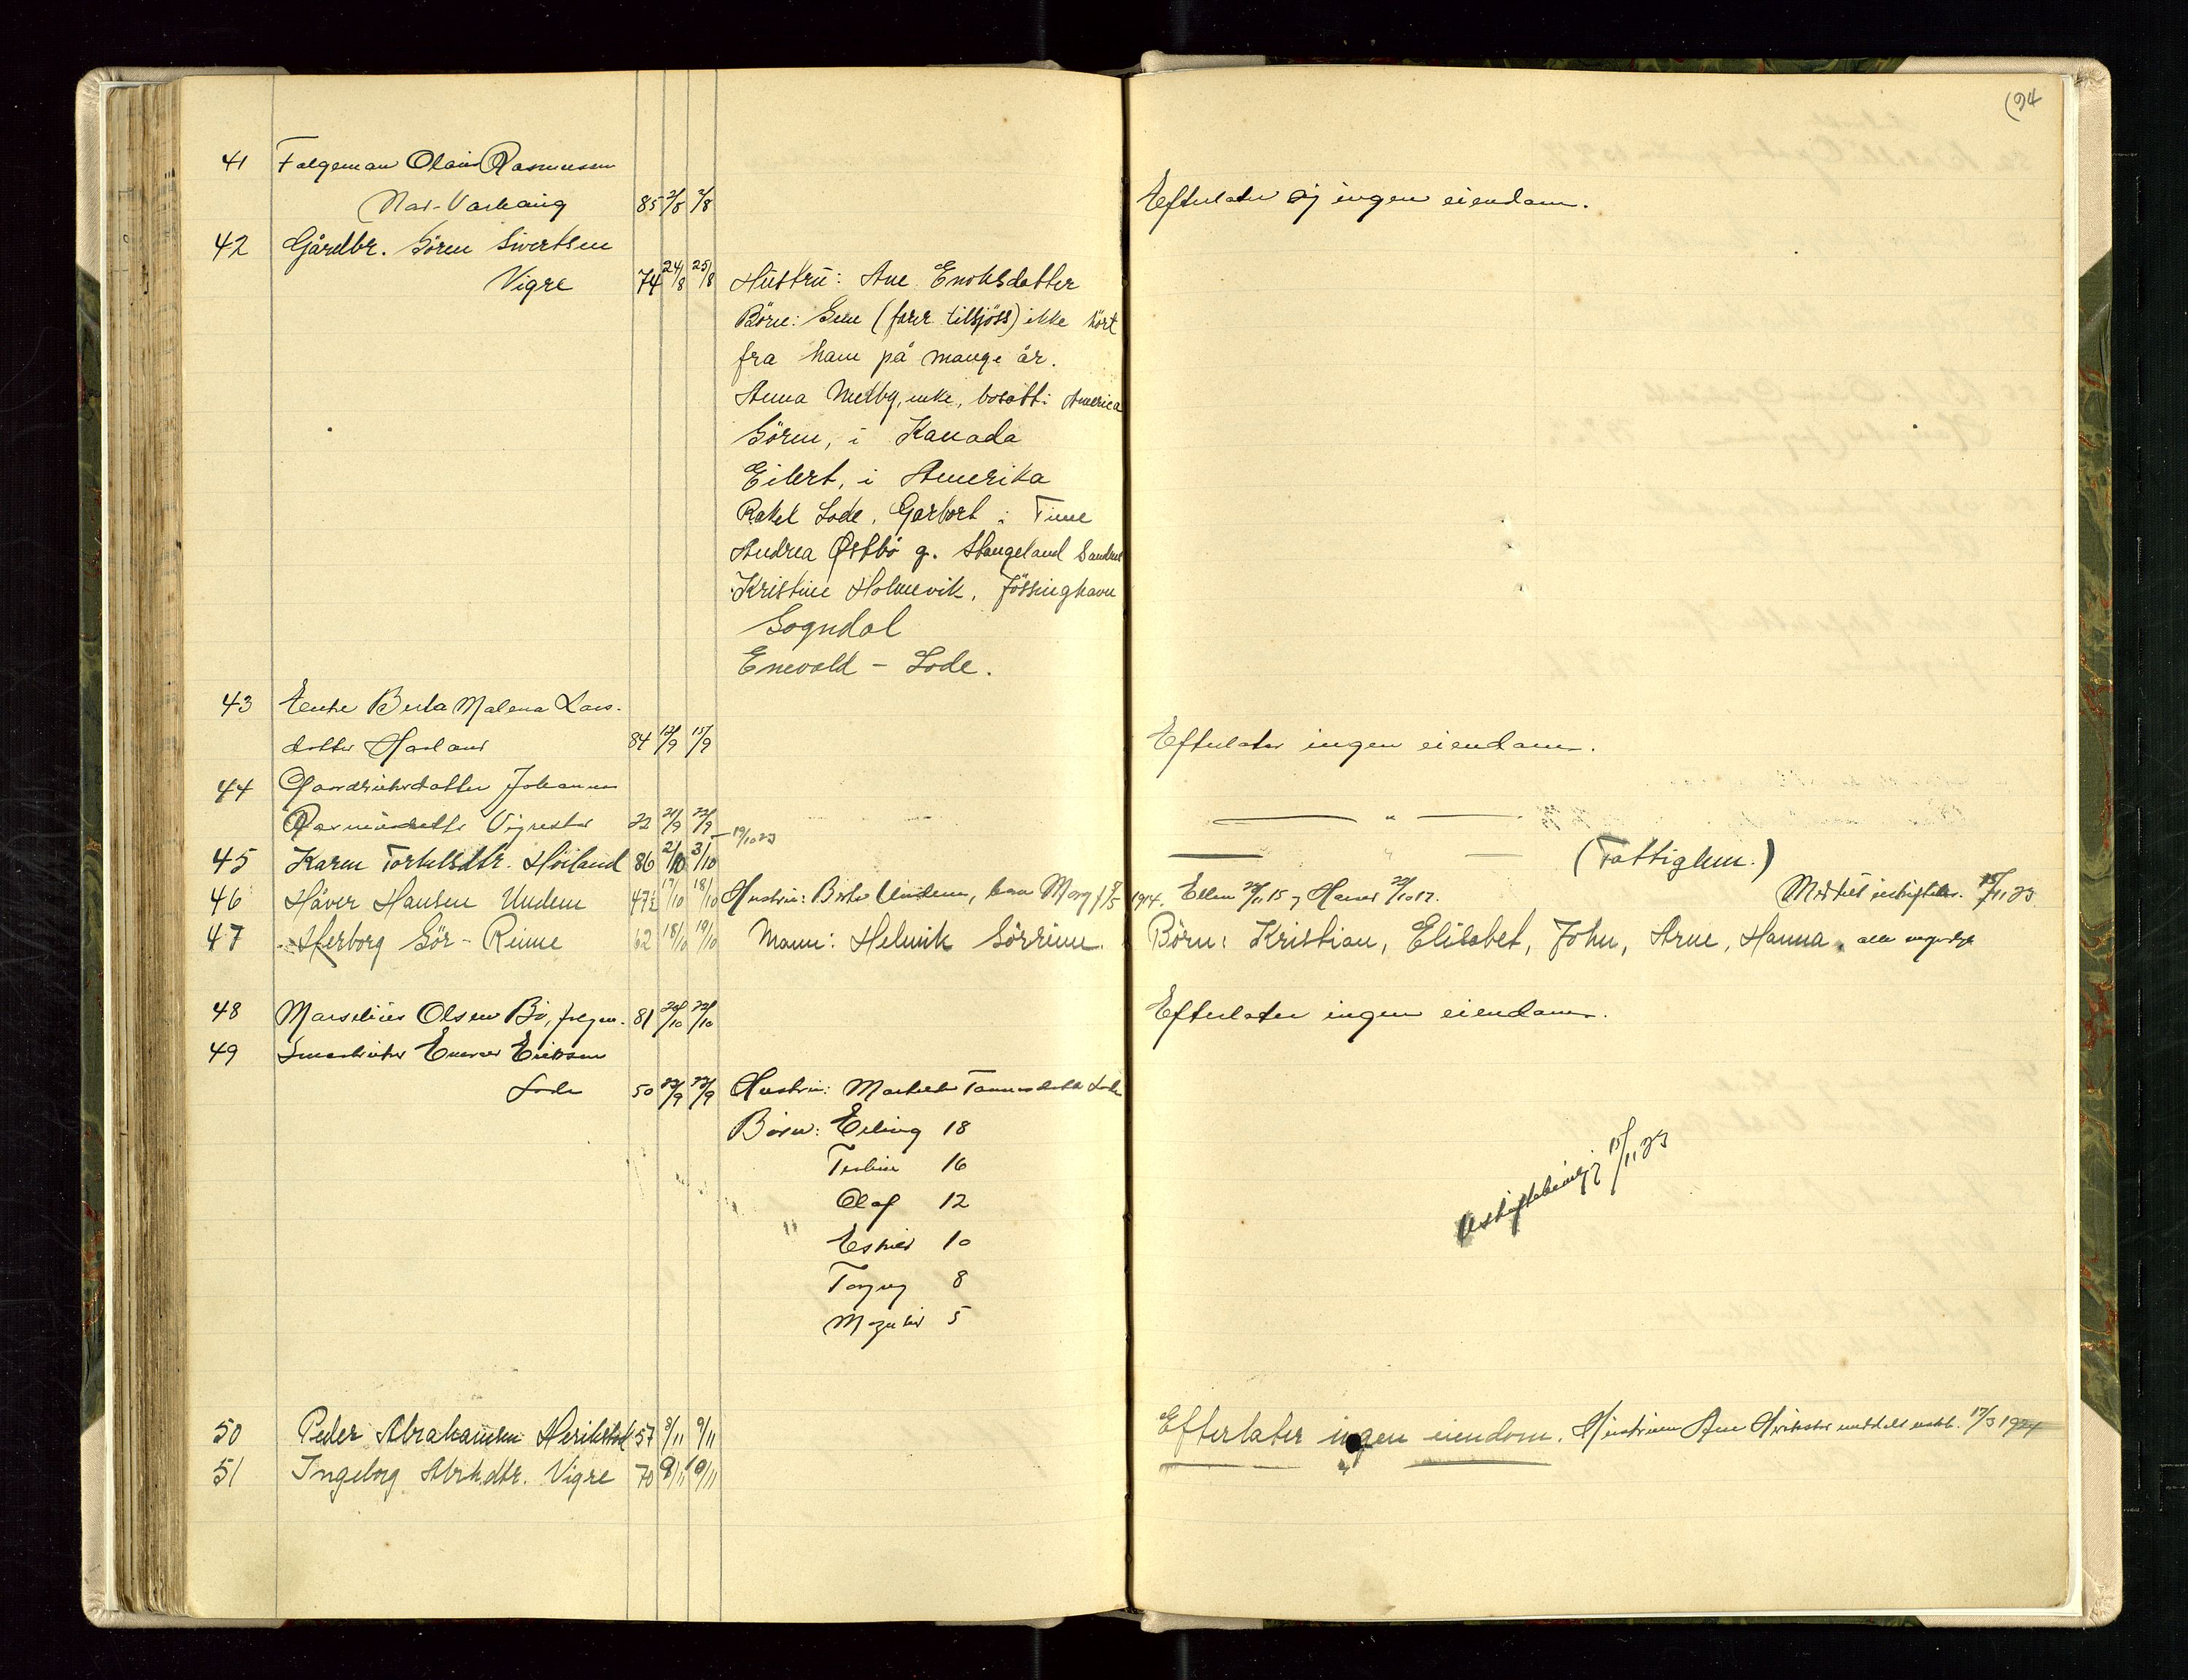 (94
41 Folgeman Olaus Rasmussen
Nar-Varhaug 85 2/8 7/8 Efterlater ej ingen eiendom.
42 Gårdbr. Sören Sivertsen
Vigre 74 24/8 25/8 Hustru: Ane Enoksdatter
Börn: Sem (farer tilsjöss) ikke hört
fra ham på mange år.
Anna Melby, enke, bosatt i America
Sören, i Kanada
Eilert, i Amerika
Rakel Lode, Garbort i Time
Andrea Østbö g. Stangeland Sandnes
Kristine Holmevik, Jössinghavn
Sogndal
Enevald - Lode.
43 Enke Berta Malena Lars-
datter Haaland 84 12/9 15/9 Efterlater ingen eiendom.
44 Gaardbrukerdatter Johanna
Rasmusdatter Vigrestad 22 21/9 22/9 — " —
19/10 23
45 Karen Torkelsdtr. Höiland 86 2/10 3/10 — " — (Fattiglem.)
46 Håver Hansen Undem 47½ 17/10 18/10 Hustru: Berta Undem, barn Marg 1914. Ellen 15 og Hans 22/10 17. Meddelt uskiftebev. 15/11 23.
47 Herborg Sör-Reime 62 18/10 19/10 Mann: Helmik Sörreime. Börn: Kristian, Elisabet, John, Arne, Hanna, alle myndige
48 Marselius Olsen Bö, folgm. 81 20/10 22/10 Efterlater ingen eiendom.
49 Smaabruker Enevar Eriksen
Lode 50 22/9 27/9 Hustru: Tønnesdatter Lode
Börn: Erling 18
16
Olaf 12
Esther 10
8
5
Uskiftebevilg 15/11 23
50 Peder Abrahamsen Herikstad 57 8/11 9/11 Efterlater ingen eiendom. Hustruen Ane Herikstad meddelt uskb. 17/3 1924
51 Ingeborg Abrh.dtr. Vigre 70 9/11 10/11 — " —